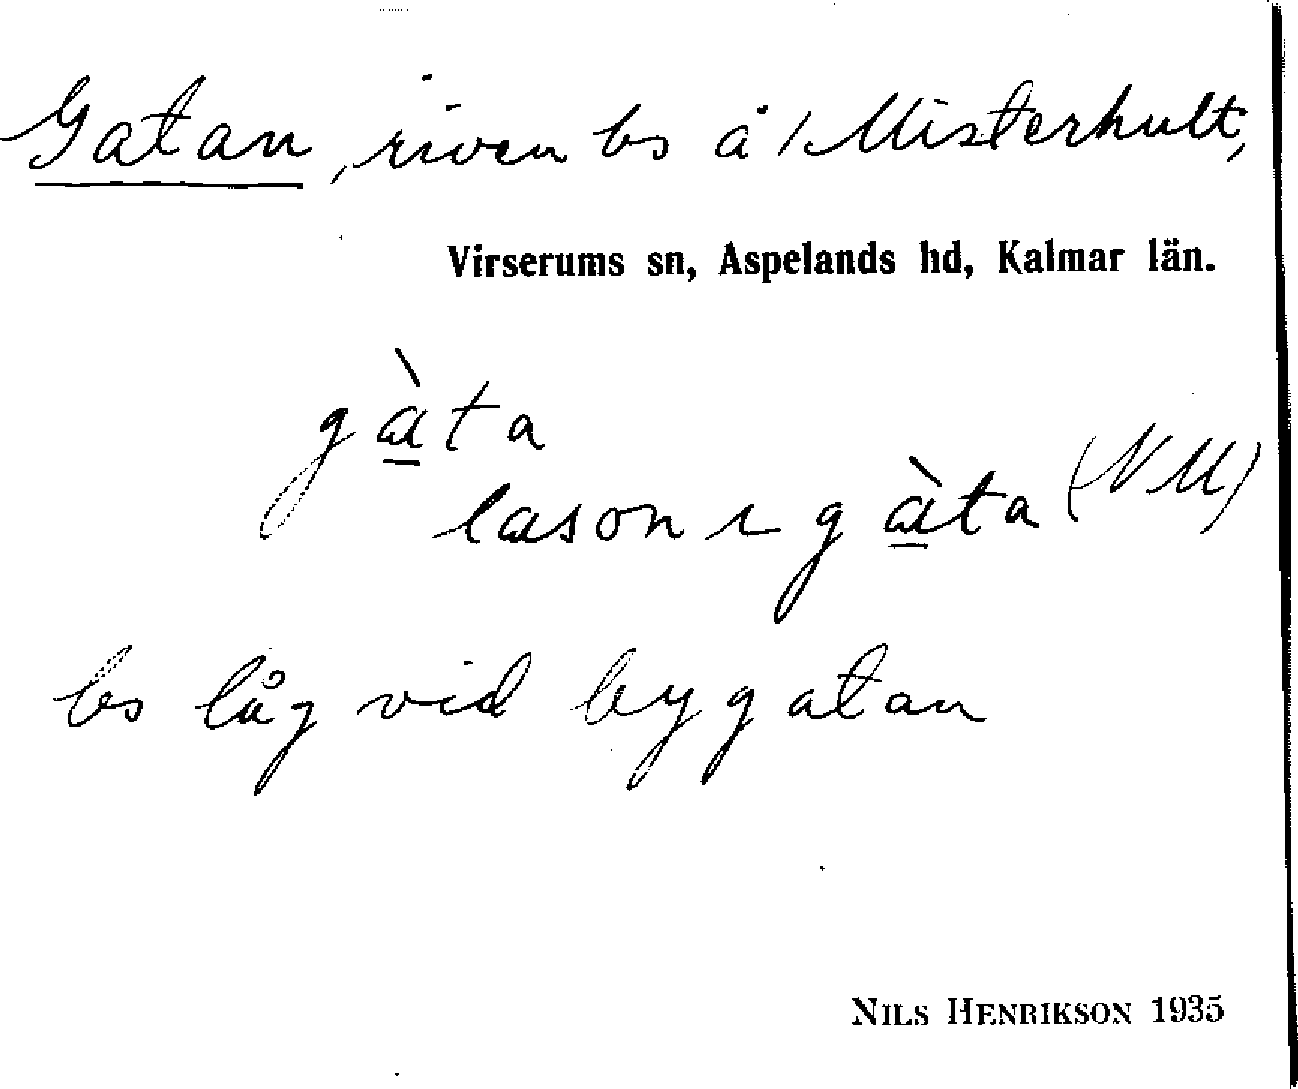 Gatan, riven bs å 1 Misterhult,
Virserums sn, Aspelands hd, Kalmar län.
gàta
lason ı gàta (NM)
bs låg vid bygatan
NILS HENRIKSON 1935